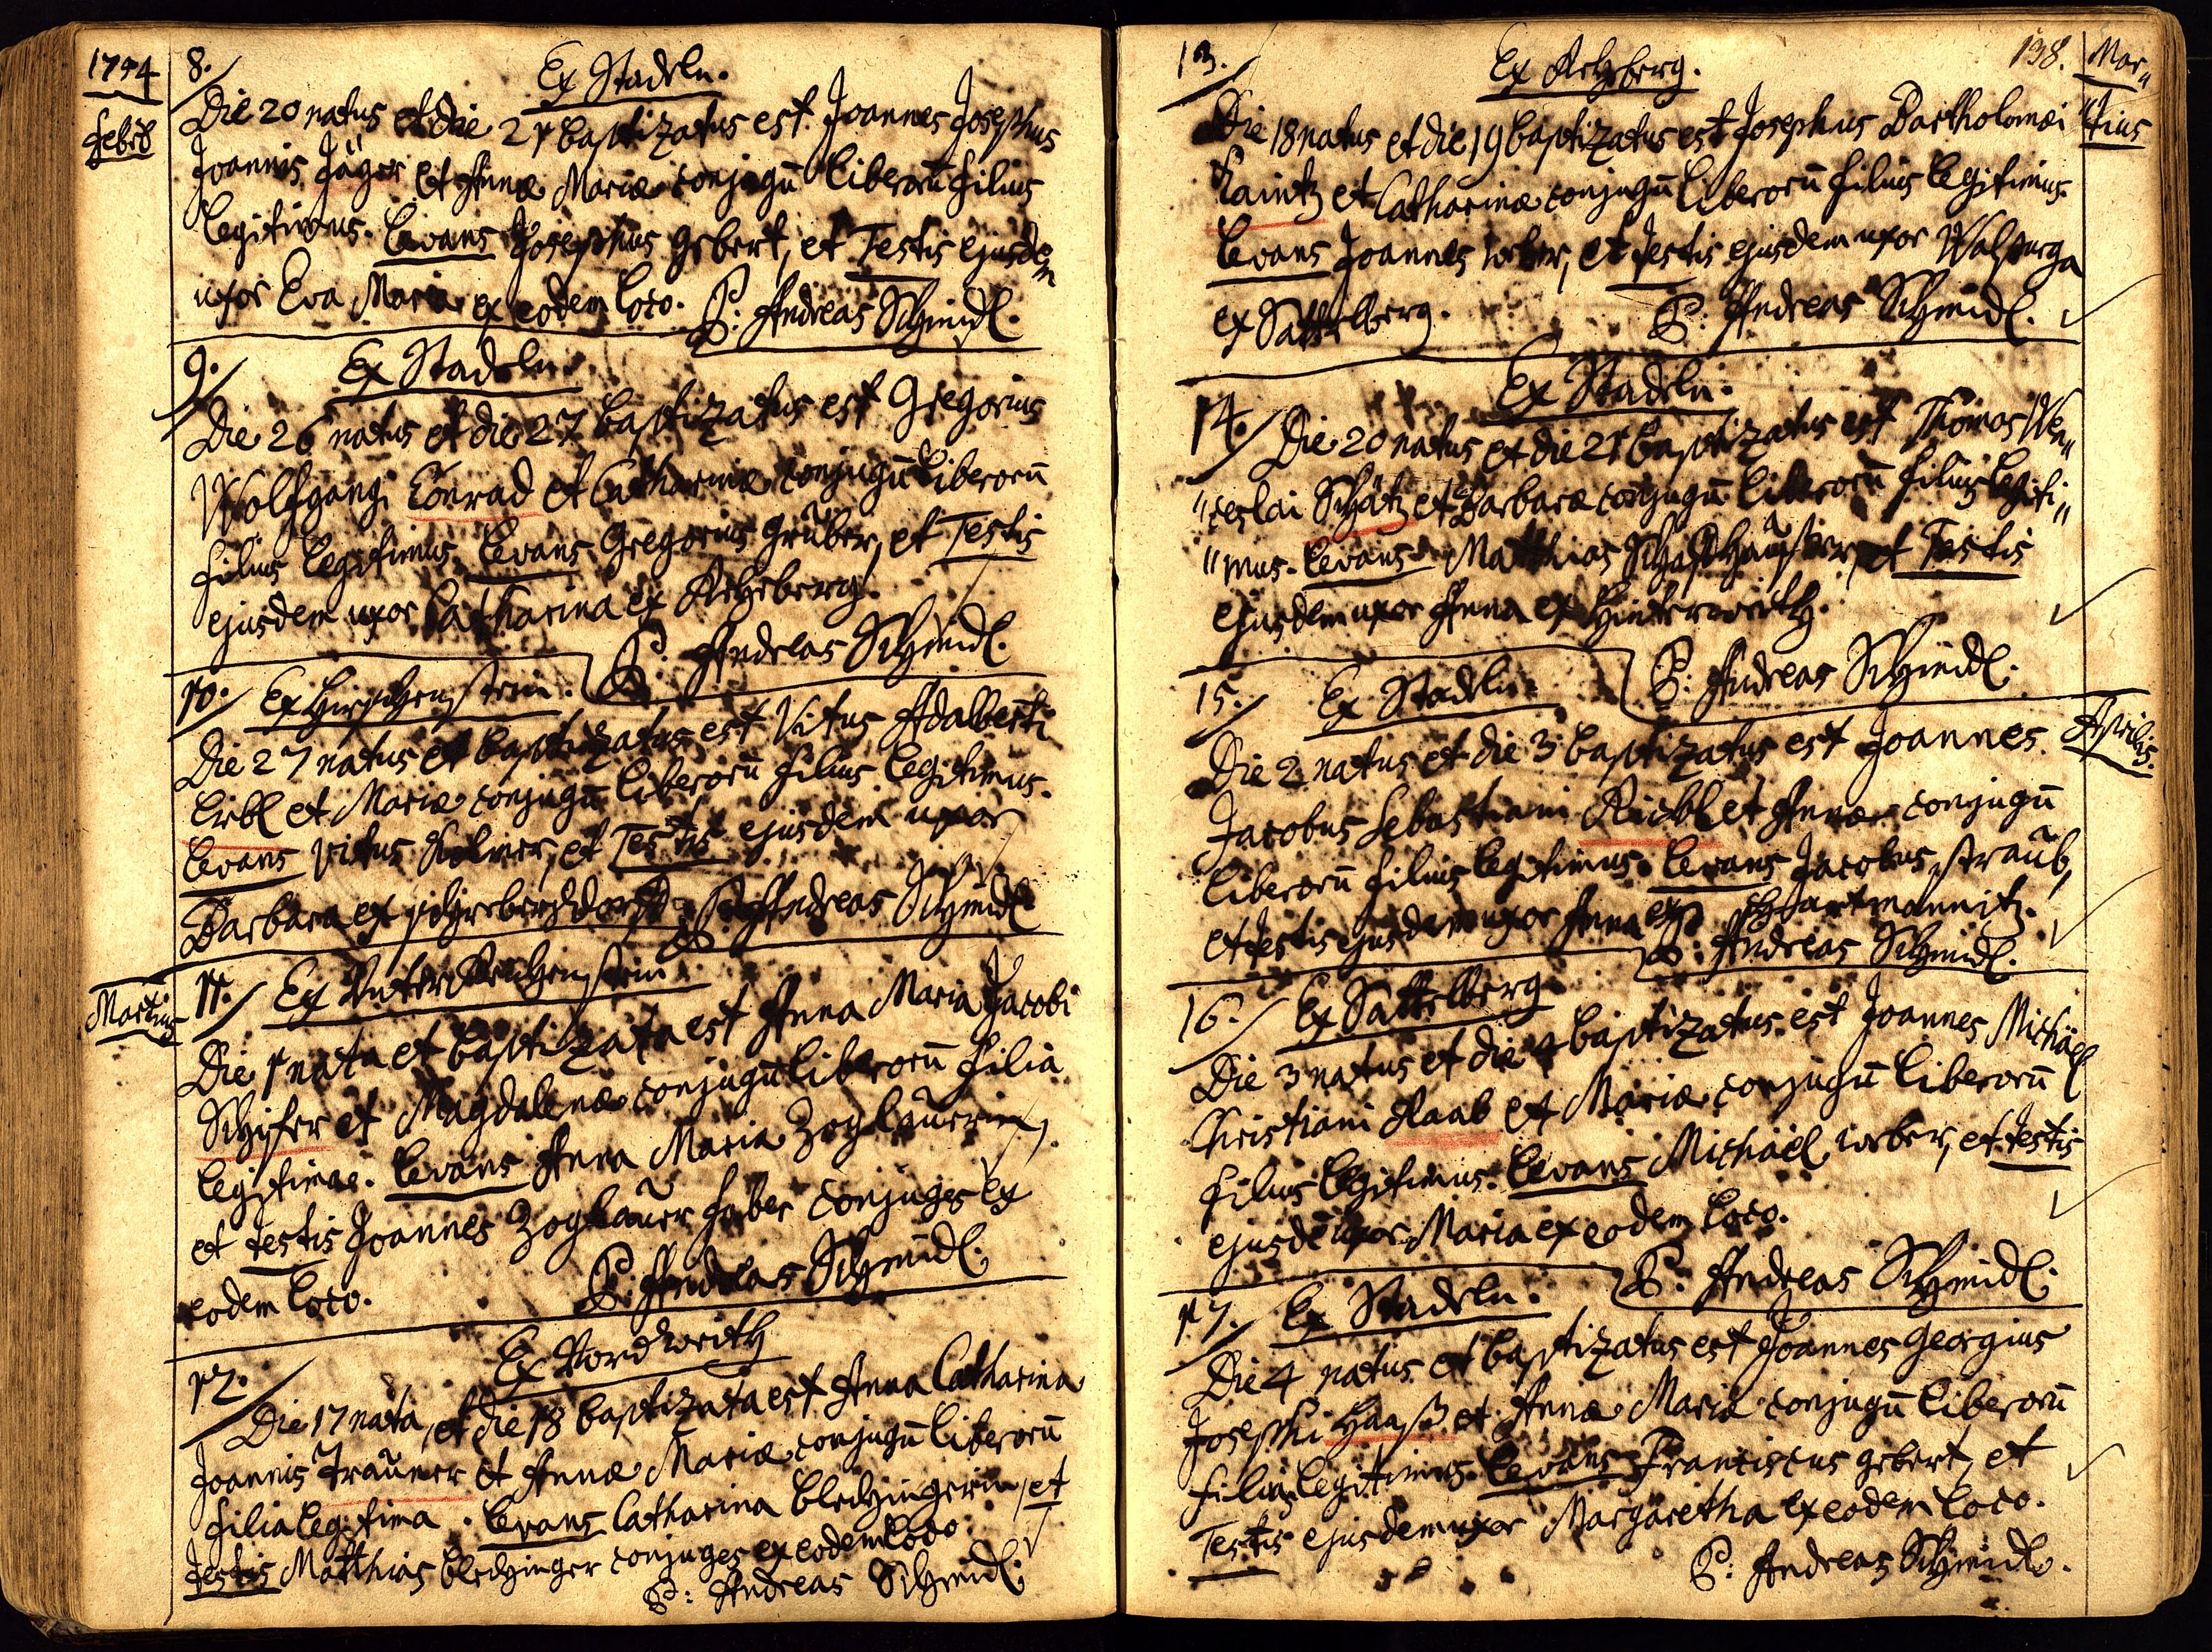 1754
Febr
8.
Ex Stadeln.
Die 20 natus et die 21 baptizatus est Joannes Josephus
Joannis Jäger et Annæ Mariæ conjugū liberorū filius
legitimus. Levans Josephus Gebert, et Testis ejusdem
uxor Eva Maria ex eodem loco. P: Andreas Schmidl.
9.
Ex Stadeln.
Die 26 natus et die 27 baptizatus est Gregorius
Wolfgangi Conrad et Catharinæ conjugū liberorū
filius legitimus. Levans Gregorius Grŭber, et Testis
ejusdem uxor Catharina ex
P: Andreas Schmidl.
10. Ex Hirschenstein.
Die 27 natus et baptizatus est Vitus Adalberti
Erbl et Mariæ conjugū liberorū filius legitimus.
Levans Vitus et Testis ejusdem uxor
Barbara ex P: Andreas Schmidl
Martius
11. Ex Unter Reichenstein
Die 1 nata et baptizata est Anna Maria Jacobi
Schifer et Magdalenæ conjugū liberorū filia
legitima. Levans Anna Maria Zoglaŭerin,
et testis Joannes Zoglaŭer faber conjuges ex
eodem loco. P: Andreas Schmidl.
12.
Ex Vordwerth
Die 17 nata, et die 18 baptizata est Anna Catharina
Joannis Traŭner et Annæ Mariæ conjugū liberorū
filia legitima. Levans Catharina Blechingerin, et
testis Matthias Blechinger conjuges ex eodem loco.
P: Andreas Schmidl.
138.
Mar„
„tius
13.
Ex
Die 18 natus et die 19 baptizatus est Josephus Bartholomæi
et Catharinæ conjugū liberorū filius legitimus.
Levans Joannes Weber, et testis ejusdem uxor Walburga
ex Sattelberg. P: Andreas Schmidl.
14.
Ex Stadeln.
Die 20 natus et die 21 baptizatus est Thomas Wen„
„ceslai Schätz et Barbaræ conjugū liberorū filius legiti„
„mus. Levans Matthias et Testis
ejusdem uxor Anna ex Hinterwerth.
P: Andreas Schmidl.
Aprilis.
15.
Ex Stadeln.
Die 2 natus et die 3 baptizatus est Joannes
Jacobus Sebastiani et Annæ conjugū
liberorū filius legitimus. Levans Jacobus Straŭb,
et testis ejusdem uxor Anna ex Hartmannitz.
P: Andreas Schmidl.
16.
Ex Sattelberg
Die 3 natus et die 4 baptizatus est Joannes Michäel
Christiani Raab et Mariæ conjugū liberorū
filius legitimus. Levans Michäel Weber, et testis
ejusdē uxor Maria ex eodem loco.
P: Andreas Schmidl.
17.
Ex Stadeln.
Die 4 natus et baptizatus est Joannes Georgius
Josephi Haaß et Annæ Mariæ conjugū liberorū
filius legitimus. Levans Franciscus Gebert, et
Testis ejusdem uxor Margaretha ex eodem loco.
P: Andreas Schmidl.